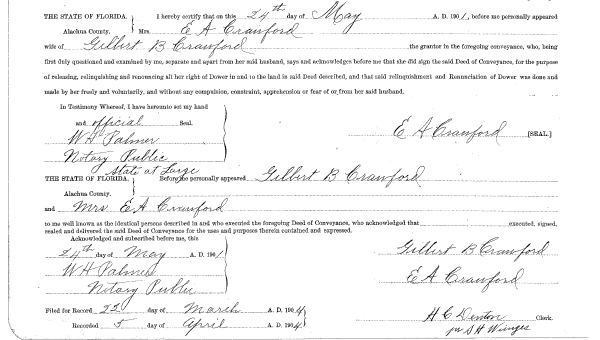 THE STATE OF FLORIDA. I hereby certify that on this 24th day of May A. D. 1901, before me personally appeared
Alachua County. Mrs. E A Crawford
wife of Gilbert B Crawford the grantor in the foregoing conveyance, who, being
first duly questioned and examined by me, separate and apart from her said husband, says and acknowledges before me that she did sign the said Deed of Conveyance, for the purpose
of releasing, relinquishing and renouncing all her right of Dower in and to the land in said Deed described, and that said relinquishment and Renunciation of Dower was done and
made by her freely and voluntarily, and without any compulsion, constraint, apprehension or fear of or from her said husband.
In Testimony Whereof, I have hereunto set my hand
and official Seal.
W H Palmer E A Crawford [SEAL.]
Notary Public
State at Large
THE STATE OF FLORIDA. Before me personally appeared Gilbert B Crawford
Alachua County.
and Mrs E A Crawford
to me well known as the identical persons described in and who executed the foregoing Deed of Conveyance, who acknowledged that executed, signed,
sealed and delivered the said Deed of Conveyance for the uses and purposes therein contained and expressed.
Acknowledged and subscribed before me, this
24th day of May A. D. 1901 Gilbert B Crawford
W H Palmer E A Crawford
Notary Public
Filed for Record 22 day of March A. D. 1904 H C Denton Clerk.
Recorded 5 day of April A. D. 1904 S H Wienges